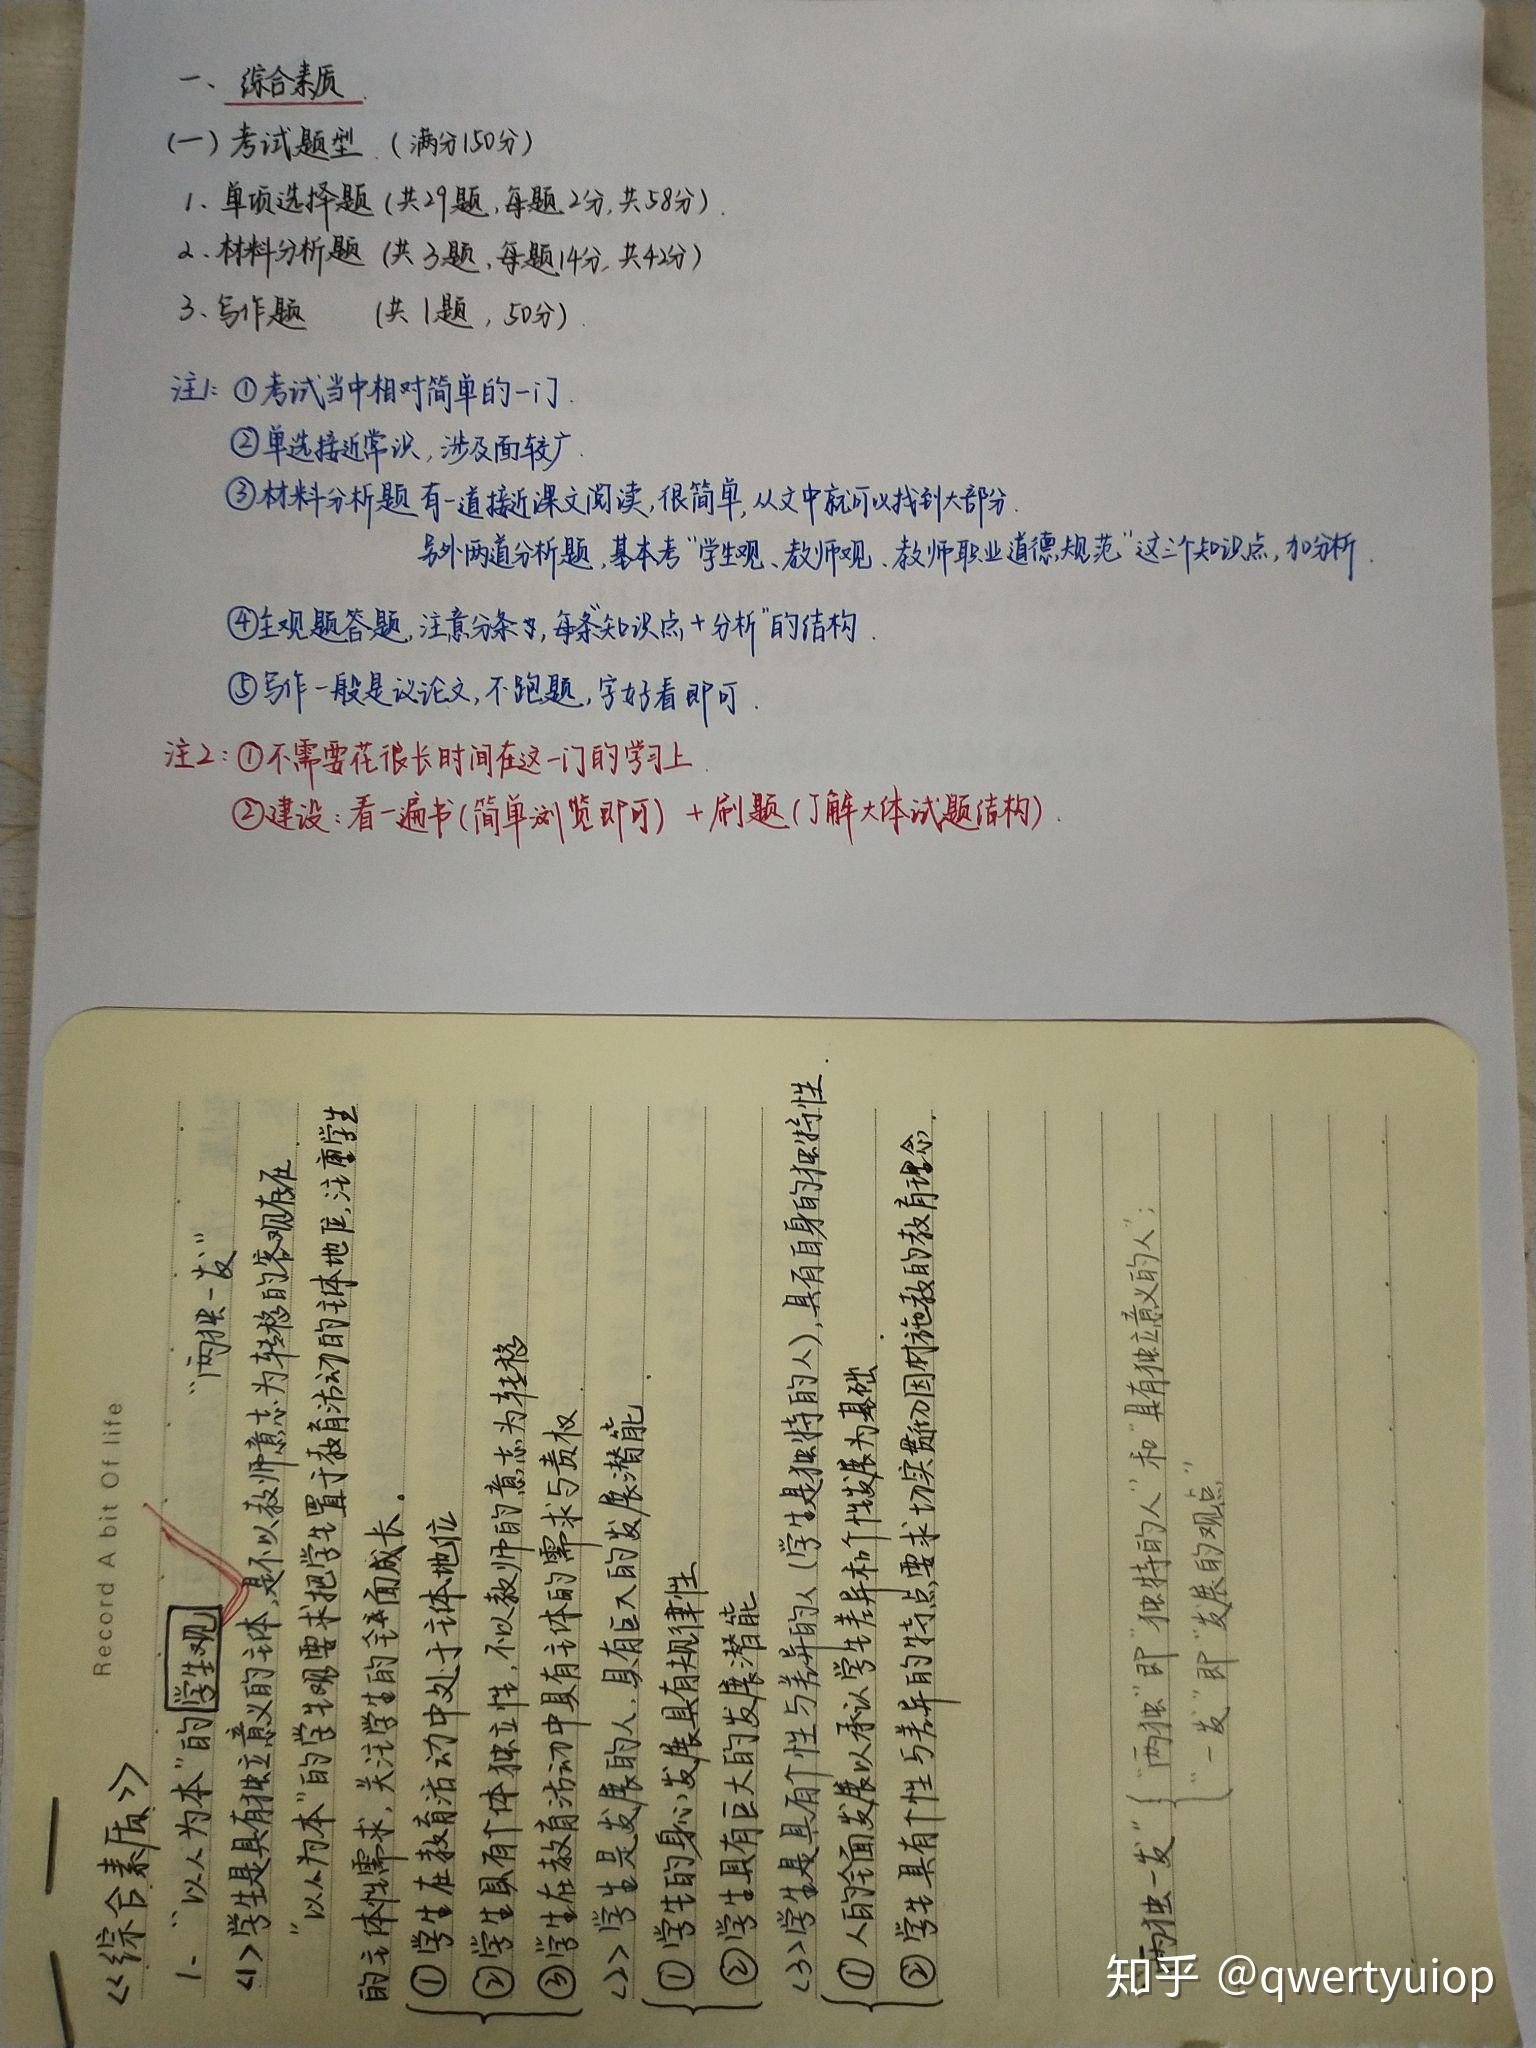 一、综合素质
(一)考试题型.(满分150分)
1、单项选择题(共29题,每题2分,共58分).
2、材料分析题(共3题,每题14分,共42分)
3、写作题 (共1题,50分).
注1:①考试当中相对简单的一门.
②单选接近常识,涉及面较广.
③材料分析题有一道接近课文阅读,很简单,从文中就可以找到大部分.
另外两道分析题,基本考“学生观、教师观、教师职业道德规范”这三个知识点,加分析.
④主观题答题,注意分条,每条“知识点+分析”的结构.
⑤写作一般是议论文,不跑题,字好看即可.
注2:①不需要花很长时间在这一门的学习上.
②建设:看一遍书(简单浏览即可)+刷题(了解大体试题结构).
Record A bit Of life
《综合素质》
1、“以人为本”的学生观 “两独一发”
<1>学生是具有独立意义的主体,是不以教师意志为转移的客观存在.
“以人为本”的学生观要求把学生置于教育活动的主体地位,注重学生
的主体性需求,关注学生的全面成长。
①学生在教育活动中处于主体地位
②学生具有个体独立性,不以教师的意志为转移
③学生在教育活动中具有主体的需求与责权.
<2>学生是发展的人,具有巨大的发展潜能.
①学生的身心发展具有规律性
②学生具有巨大的发展潜能
<3>学生是具有个性与差异的人(学生是独特的人),具有自身的独特性.
①人的全面发展以承认学生差异和个性发展为基础.
②学生具有个性与差异的特点,要求切实贯彻因材施教的教育理念.
“两独一发”{“两独”即“独特的人”和“具有独立意义的人”;
“一发”即“发展的观点”
知乎 @qwertyuiop